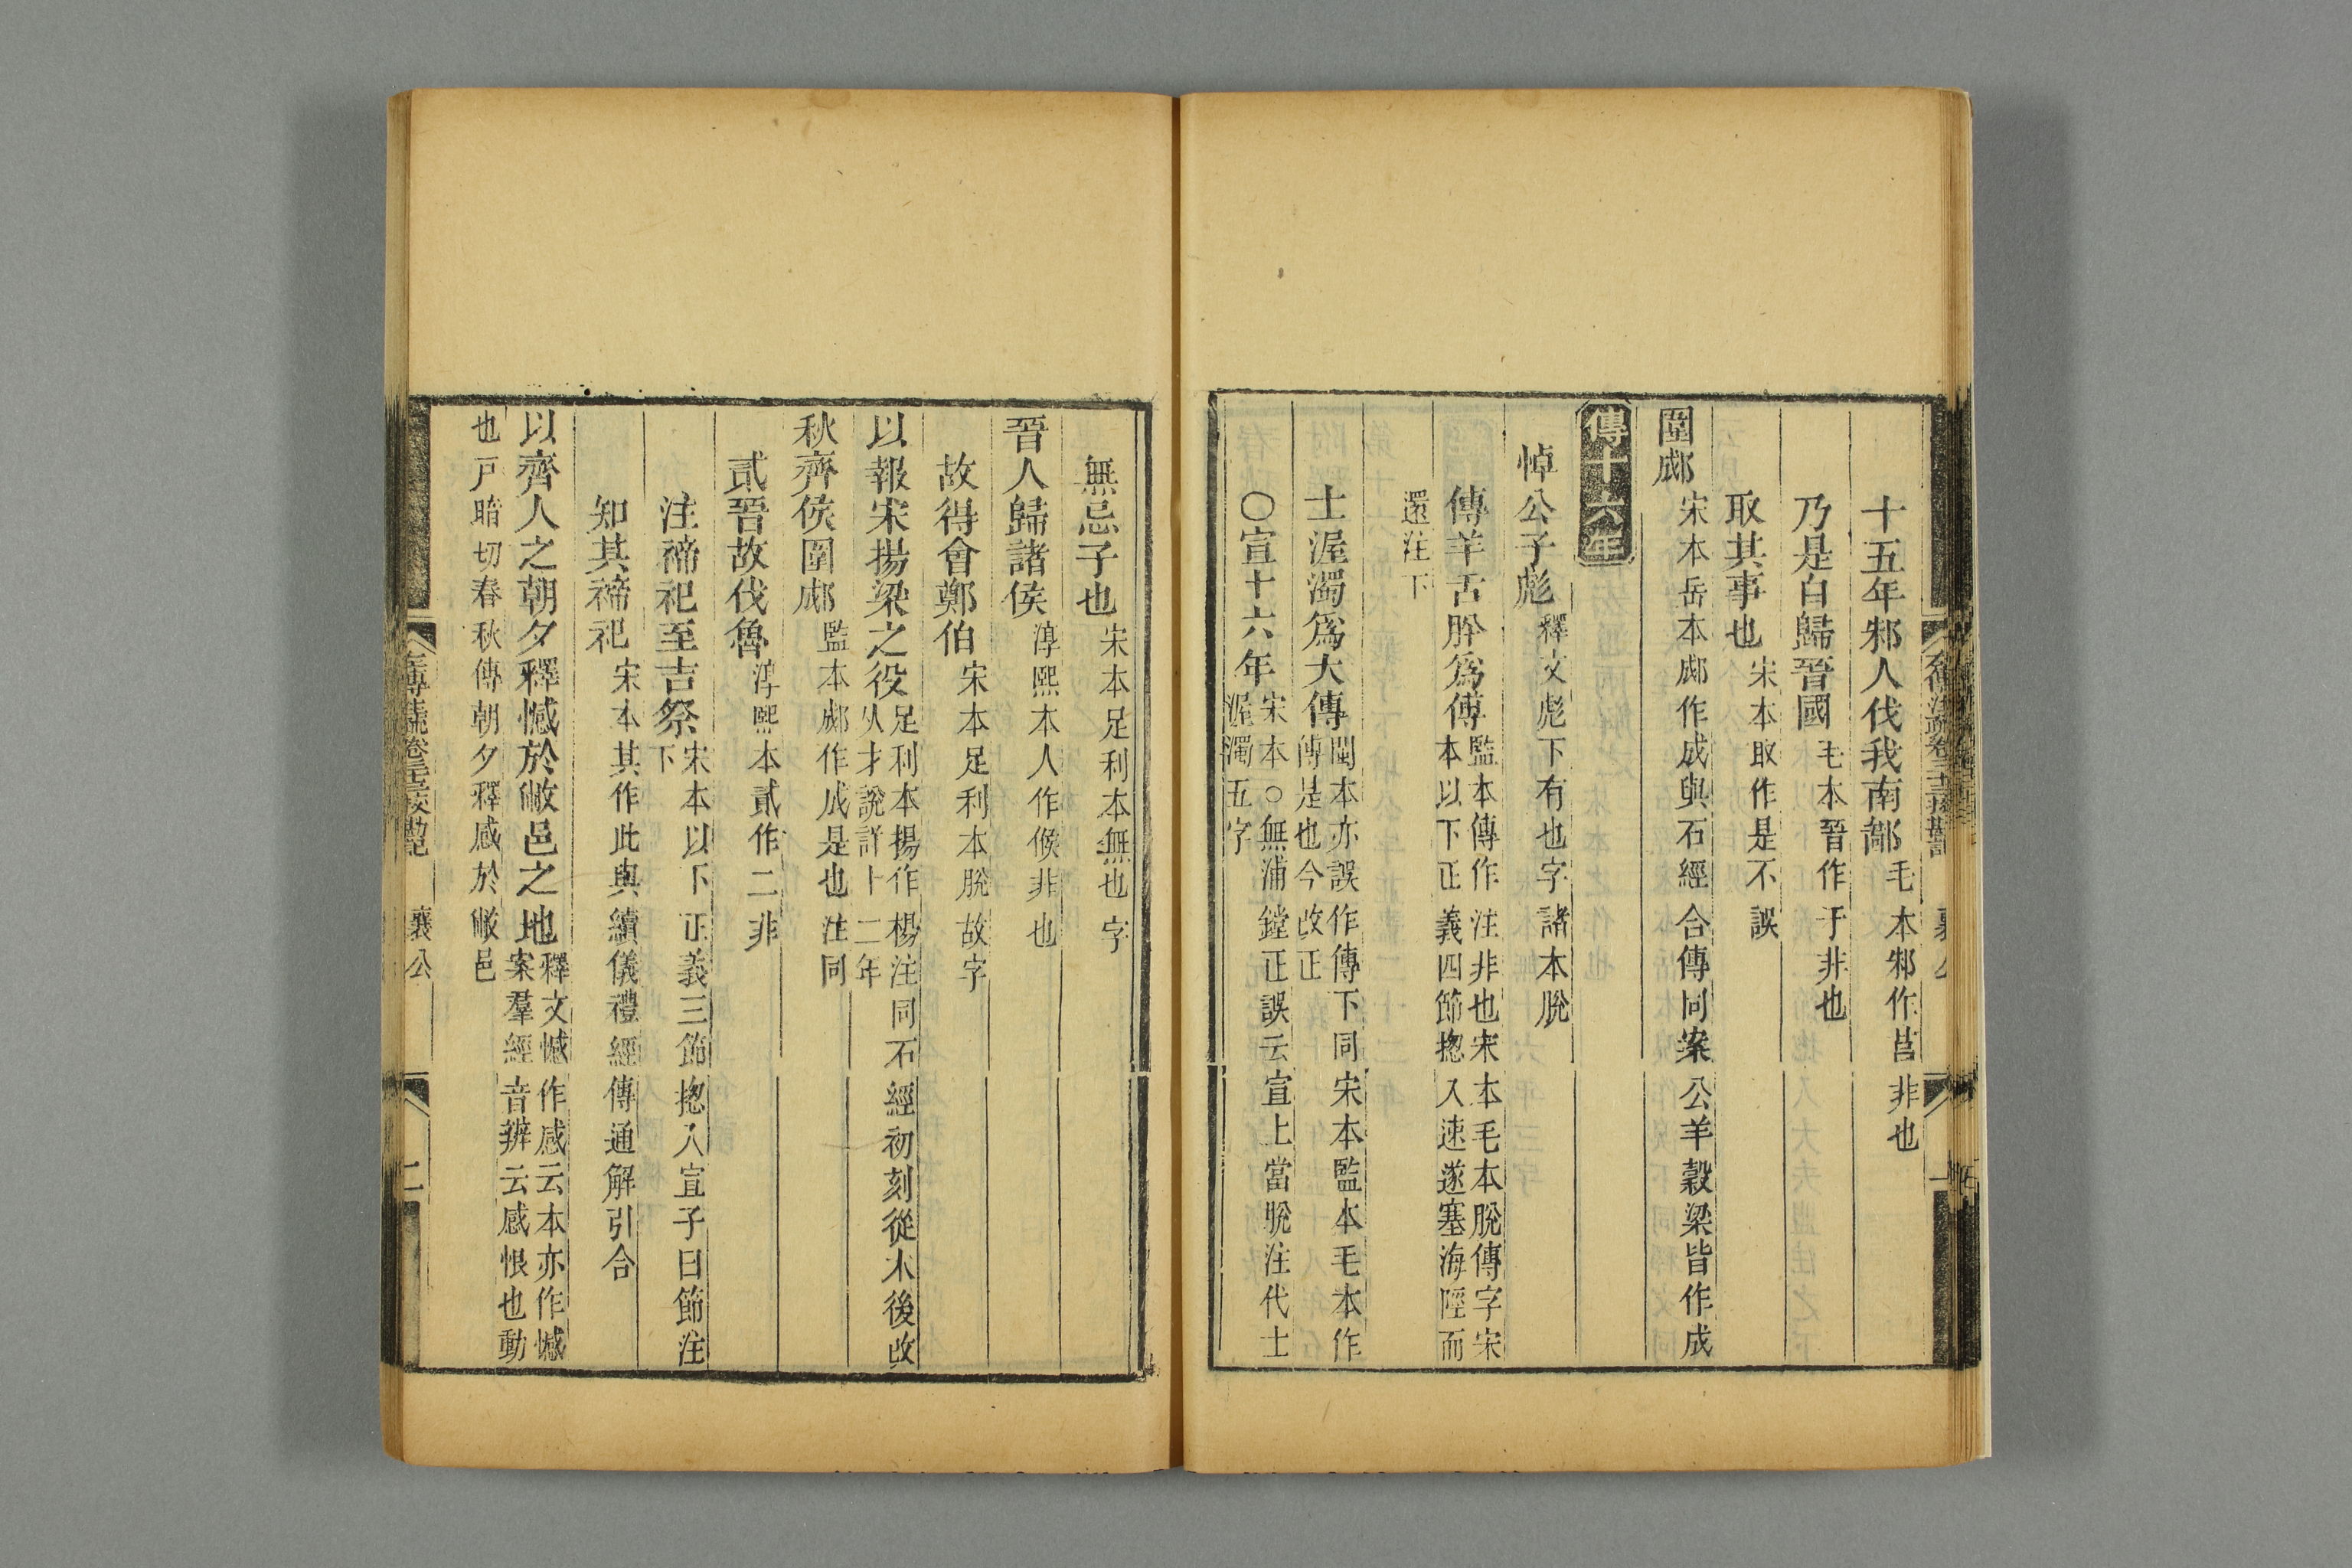 十五年邾人伐我南鄙毛本邾作莒非也
乃是白歸晉國毛本晉作于非也
取其事也宋本取作是不誤
圍郕宋本岳本郕作成與石經合傳同案公羊穀梁皆作成
傳十六年
悼公子彪釋文彪下有也字諸本脫
傳羊舌肸爲傅監本傅作注非也宋本毛本脫傳字宋
本以下正義四節揔入速遂塞海陘而
還注下
士渥濁爲大傅閩本亦誤作傳下同宋本監本毛本作
傅是也今改正
○宣十六年宋本○無浦鏜正誤云宣上當脫注代士
渥濁五字
無忌子也宋本足利本無也字
晉人歸諸侯淳熙本人作候非也
故得會鄭伯宋本足利本脫故字
以報宋揚梁之役足利本揚作楊注同石經初刻從木後改
从才說詳十二年
秋齊侯圍郕監本郕作成是也注同
貳晉故伐魯淳熙本貳作二非
注禘祀至吉祭宋本以下正義三節揔入宣子曰節注
下
知其禘祀宋本其作此與續儀禮經傳通解引合
以齊人之朝夕釋憾於敝邑之地釋文憾作感云本亦作憾
案羣經音辨云感恨也動
也戸暗切春秋傳朝夕釋感於敝邑
襄公
二